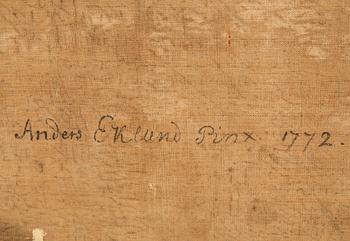 Anders Eklund Pinx 1772.